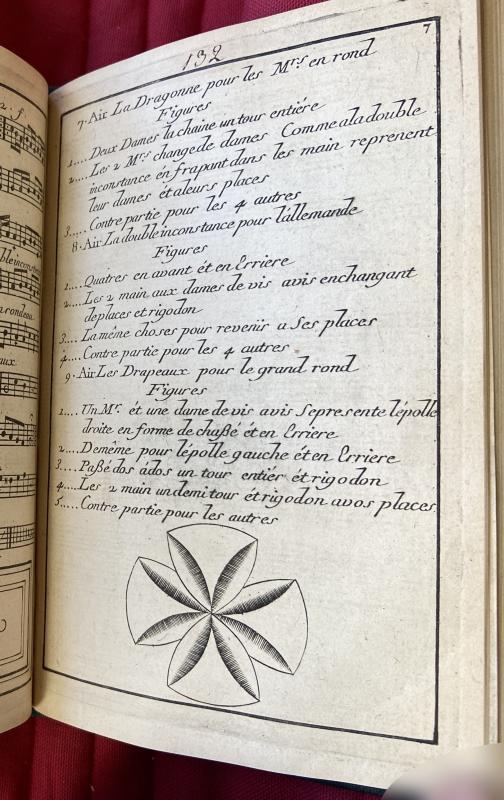 132
7
7. Air La Dragonne pour les Mrs en rond
Figures
1.... Deux Dames la chaine un tour entiére
2.... Les 2 Mrs change de dames Comme a la double
inconstance en frapant dans les main reprenent
leur dames et a leurs places
3.... Contre partie pour les 4 autres
8. Air La double inconstance pour l'allemande
Figures
1.... Quatres en avant ét en Erriere
2.... Les 2 main aux dames de vis avis en changant
de places et rigodon
3.... La même choses pour revenir a Ses places
4.... Contre partie pour les 4 autres.
9. Air Les Drapeaux pour le grand rond
Figures
1.... Un Mr. ét une dame de vis avis Se presente l'épolle
droite en forme de chassé ét en Erriere
2.... De même pour l'épolle gauche ét en Erriere
3.... Passé dos ádos un tour entiér ét rigodon
4.... Les 2 main un demi tour ét rigodon a vos places
5.... Contre partie pour les autres
2. f.